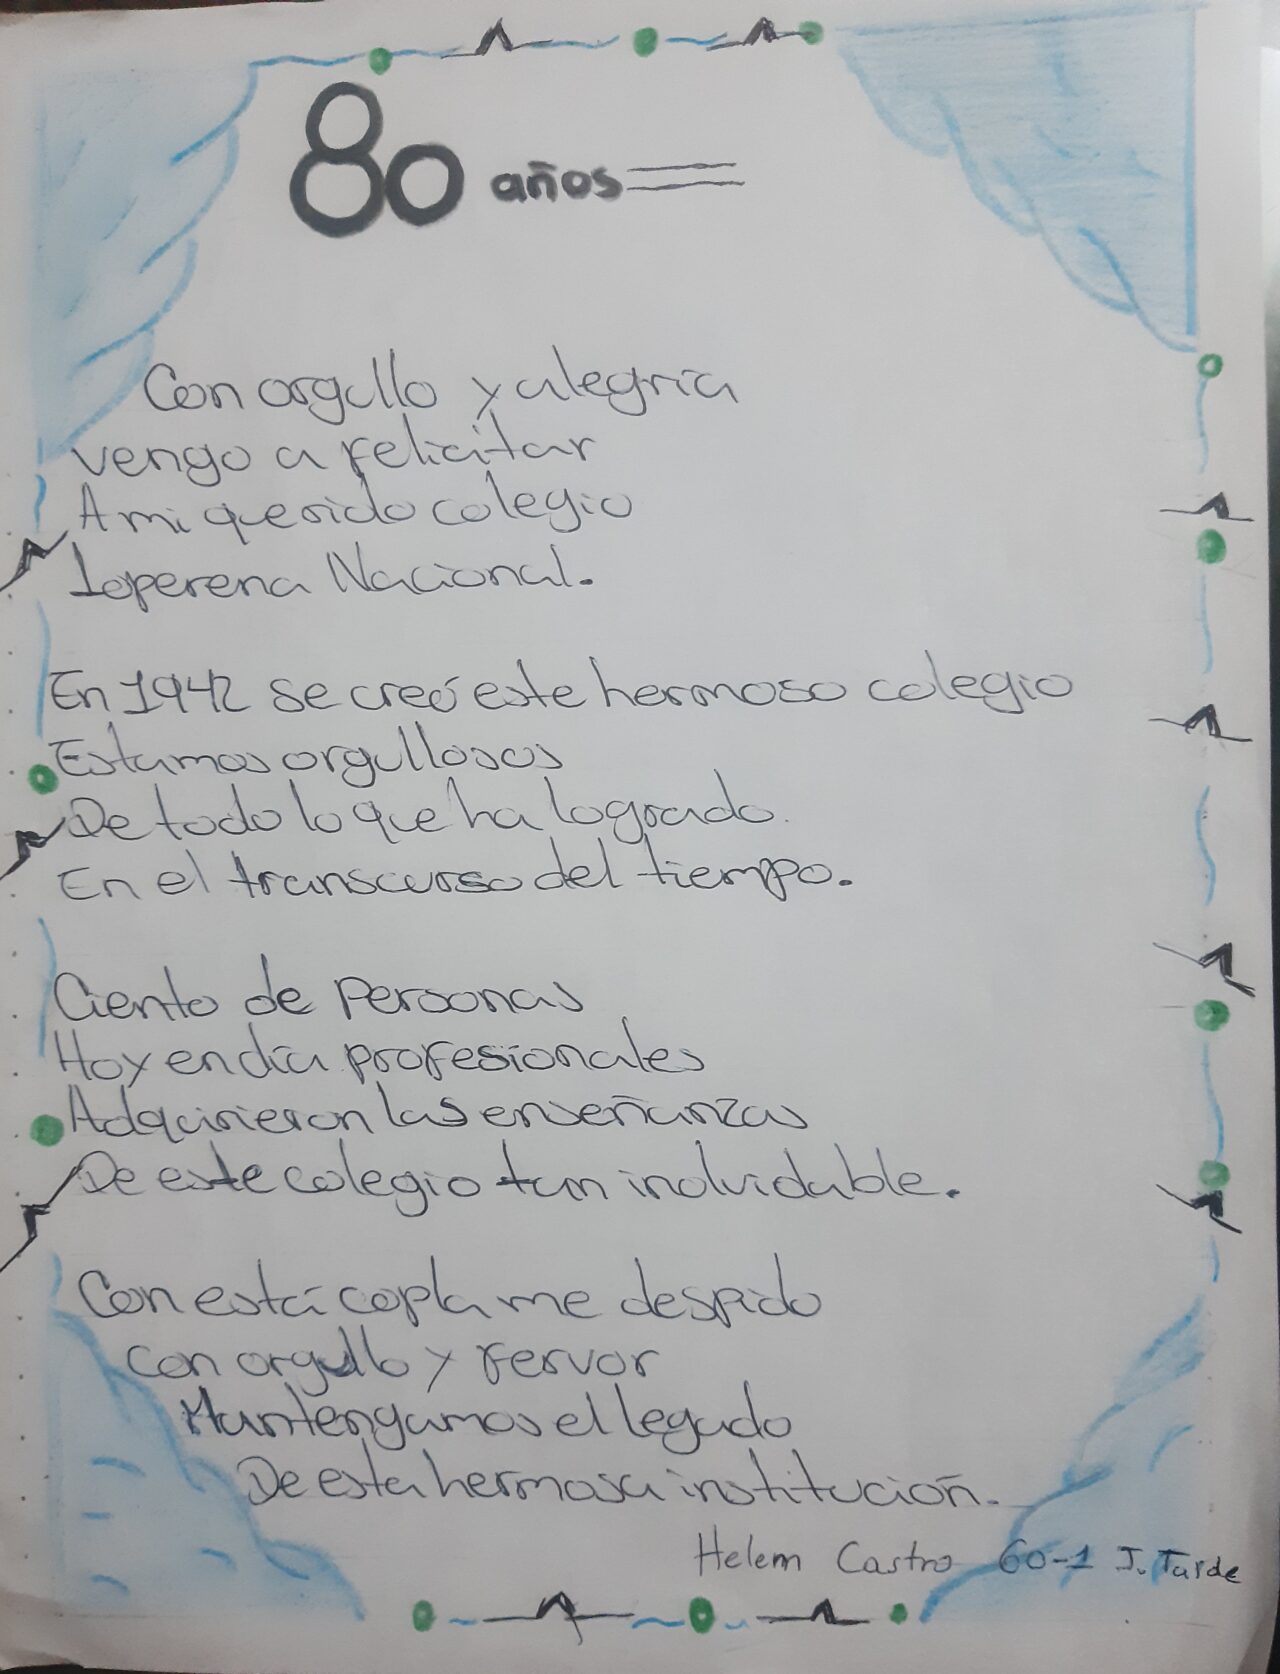 80 años
Con orgullo y alegría
vengo a felicitar
A mi querido colegio
Loperena Nacional.
En 1942 se creó este hermoso colegio
Estamos orgullosos
De todo lo que ha logrado.
En el transcurso del tiempo.
Ciento de personas
Hoy en día profesionales
Adquirieron las enseñanzas
De este colegio tan inolvidable.
Con está copla me despido
con orgullo y fervor
Mantengamos el legado
De esta hermosa institución.
Helem Castro 60-1 J. Tarde